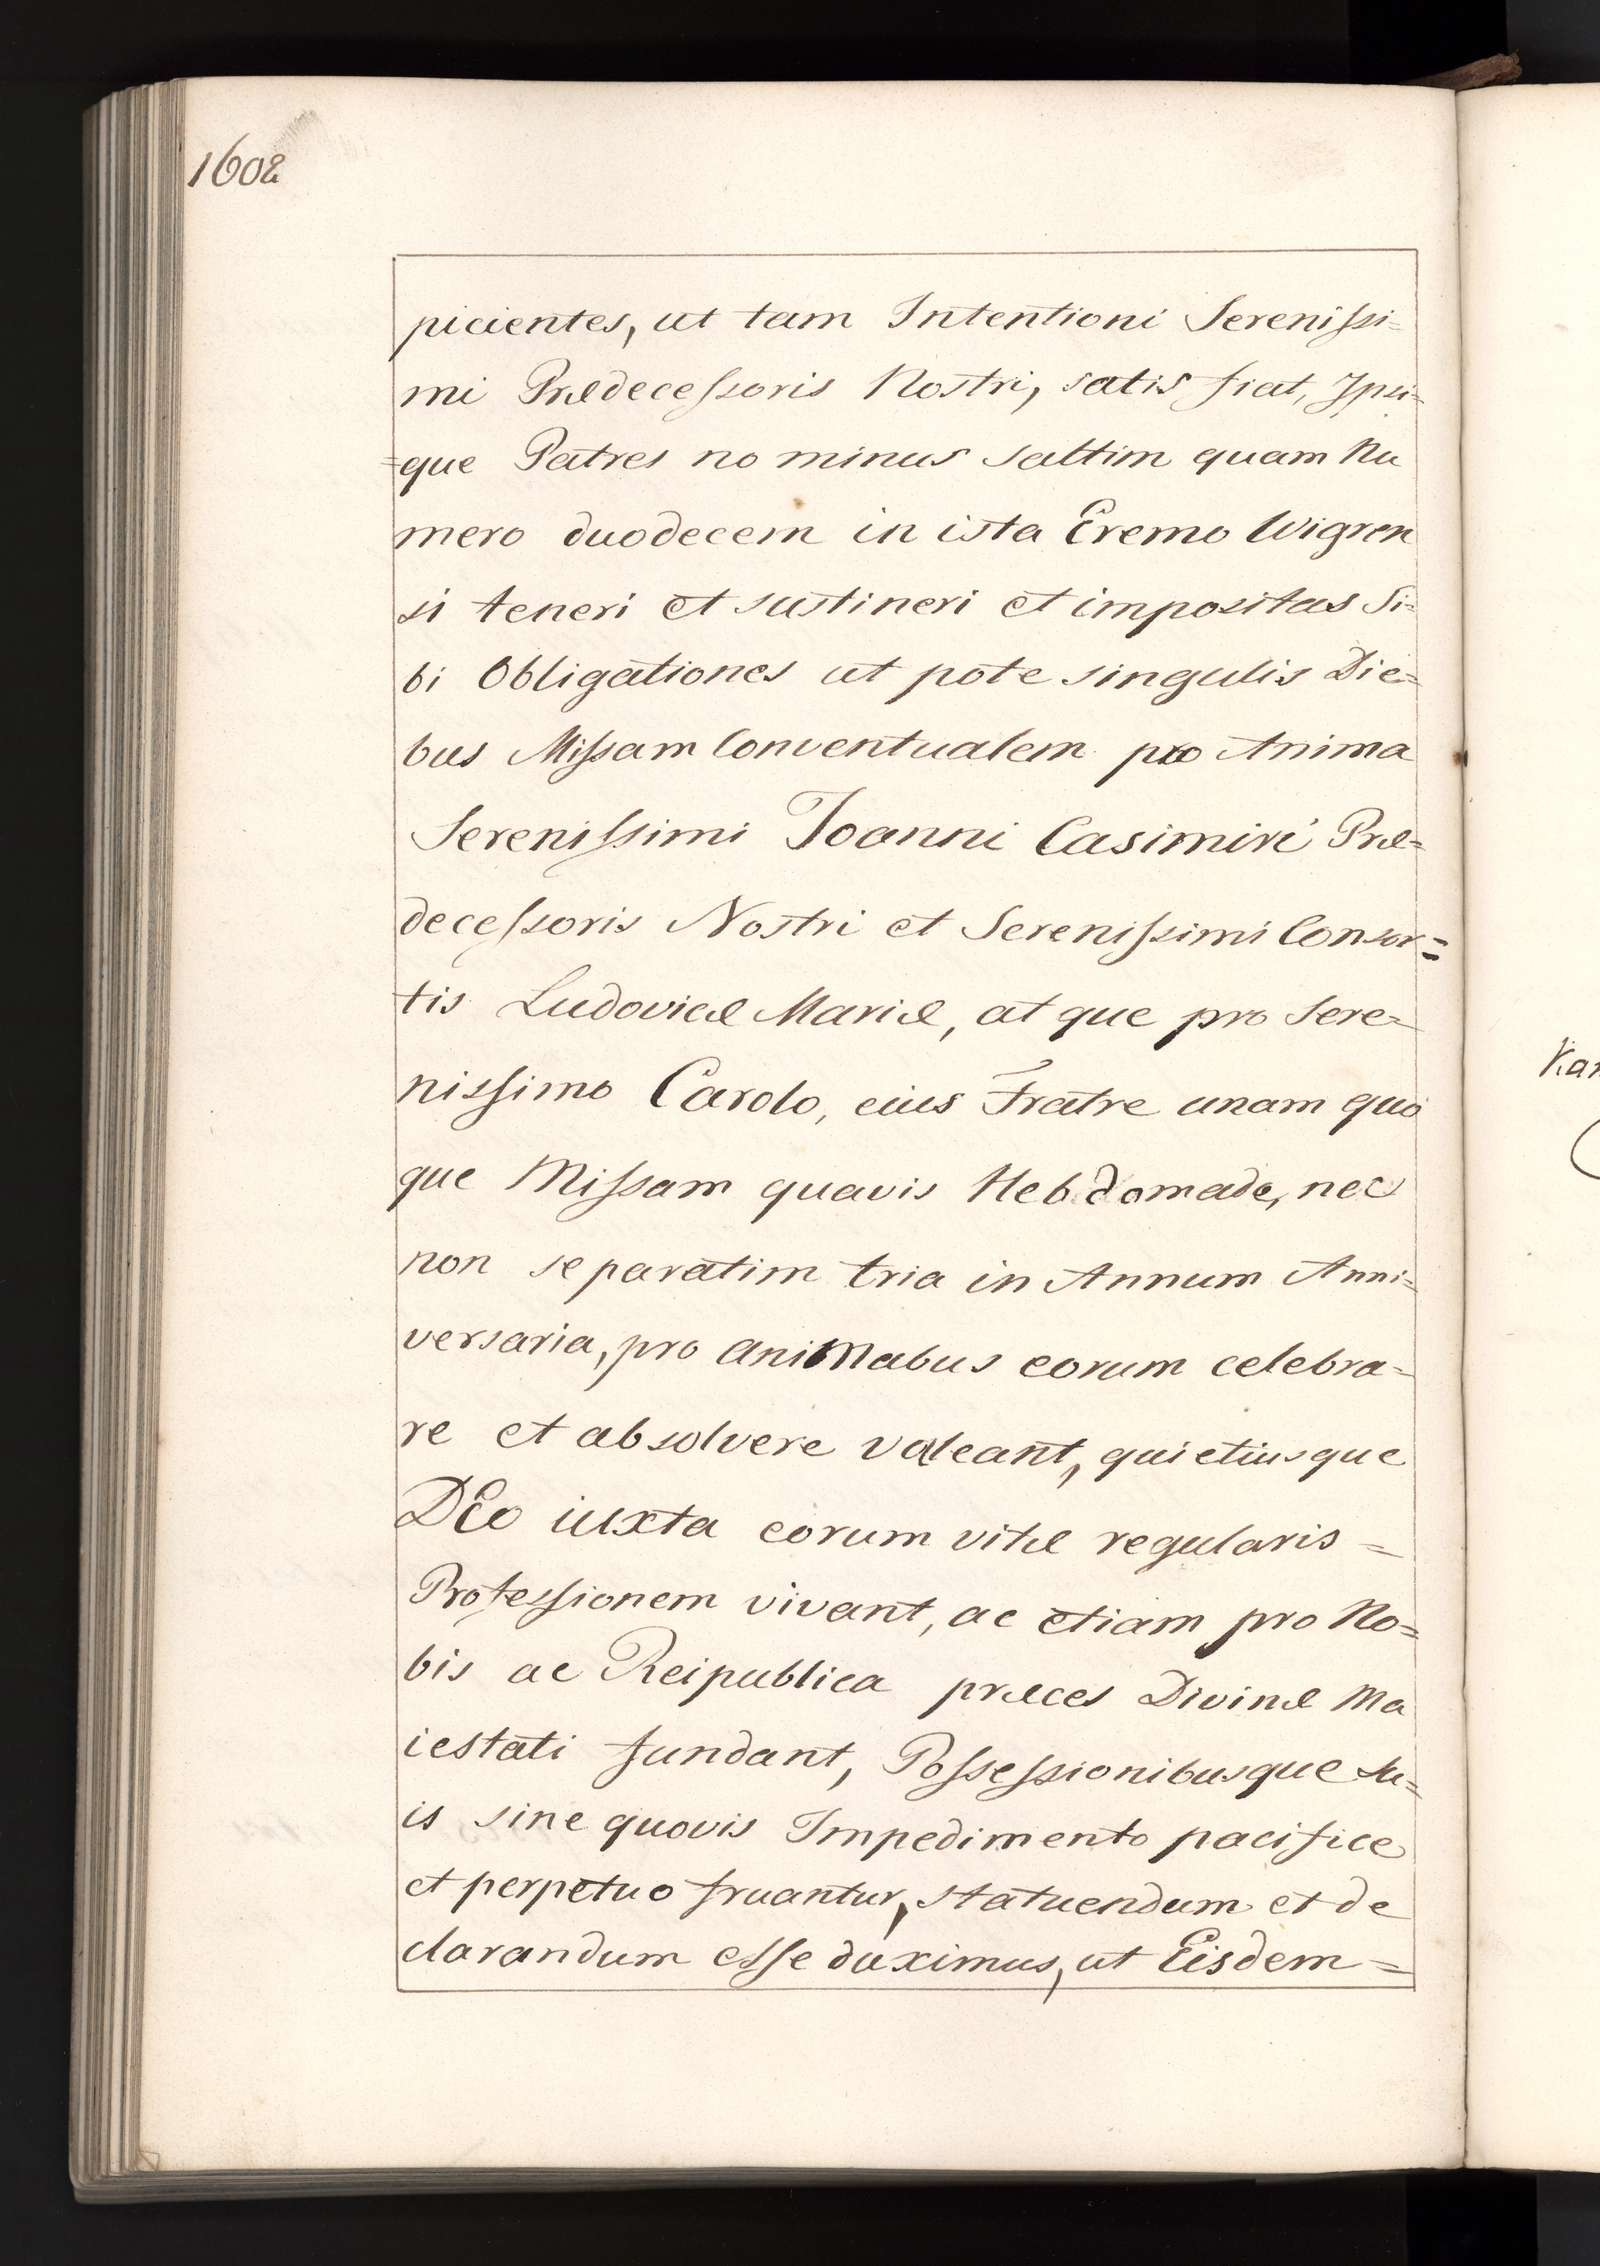 1602
picientes, ut tam Intentioni Serenissi=
mi Prædecessoris Nostri, satis fiat, Ipsi=
=que Patres no minus saltim quam Nu
mero duodecem in ista Eremo Wigren
si teneri et sustineri et impositas Si=
bi Obligationes ut pote singulis Die=
bus Missam Conventualem pro Anima
Serenissimi Joanni Casimiri Præ=
decessoris Nostri et Serenissimi Consor=
tis Ludovicæ Mariæ, at que pro Sere=
nissimo Carolo, eius Fratre unam quo
que Missam quavis Hebdomade, nec
non separatim tria in Annum Anni=
versaria, pro aniMabus eorum celebra=
re et absolvere valeant, quietiusque
DEo iuxta eorum vitæ regularis =
Professionem vivant, ac etiam pro No=
bis ac Reipublica præces Divinæ Ma
iestati fundant, Possessionibusque Su=
is sine quovis Impedimento pacifice
et perpetuo fruantur, statuendum et de
clarandum esse duximus, ut Eisdem =
Kan